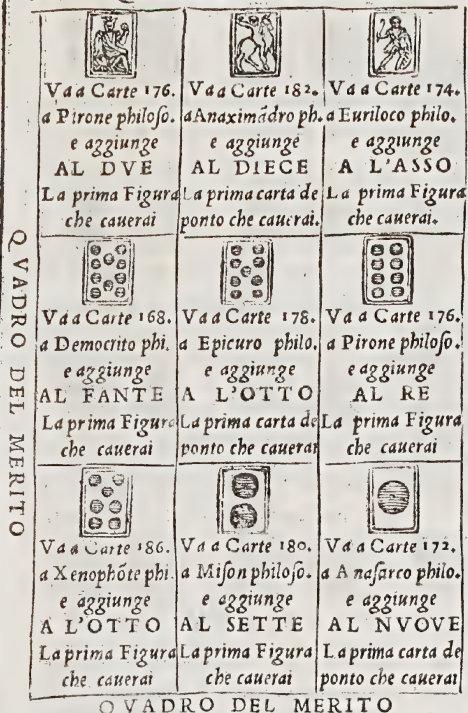 QVADRO DEL MERITO
Va a Carte 176.
a Pirone philoſo.
e aggiunge
AL DVE
La prima Figura
che cauerai
Va a Carte 182.
a Anaximãdro ph.
e aggiunge
AL DIECE
La prima carta de
ponto che cauerai.
Va a Carte 174.
a Euriloco philo.
e aggiunge
A L'ASSO
La prima Figura
che cauerai.
Va a Carte 168.
a Democrito phi.
e aggiunge
AL FANTE
La prima Figura
che cauerai
Va a Carte 178.
a Epicuro philo.
e aggiunge
A L'OTTO
La prima carta de
ponto che cauerai
Va a Carte 176.
a Pirone philoſo.
e aggiunge
AL RE
La prima Figura
che cauerai
Va a Carte 186.
a Xenophõte phi.
e aggiunge
A L'OTTO
La prima Figura
che cauerai
Va a Carte 180.
a Miſon philoſo.
e aggiunge
AL SETTE
La prima Figura
che cauerai
Va a Carte 172.
a Anaſarco philo.
e aggiunge
AL NVOVE
La prima carta de
ponto che cauerai
QVADRO DEL MERITO